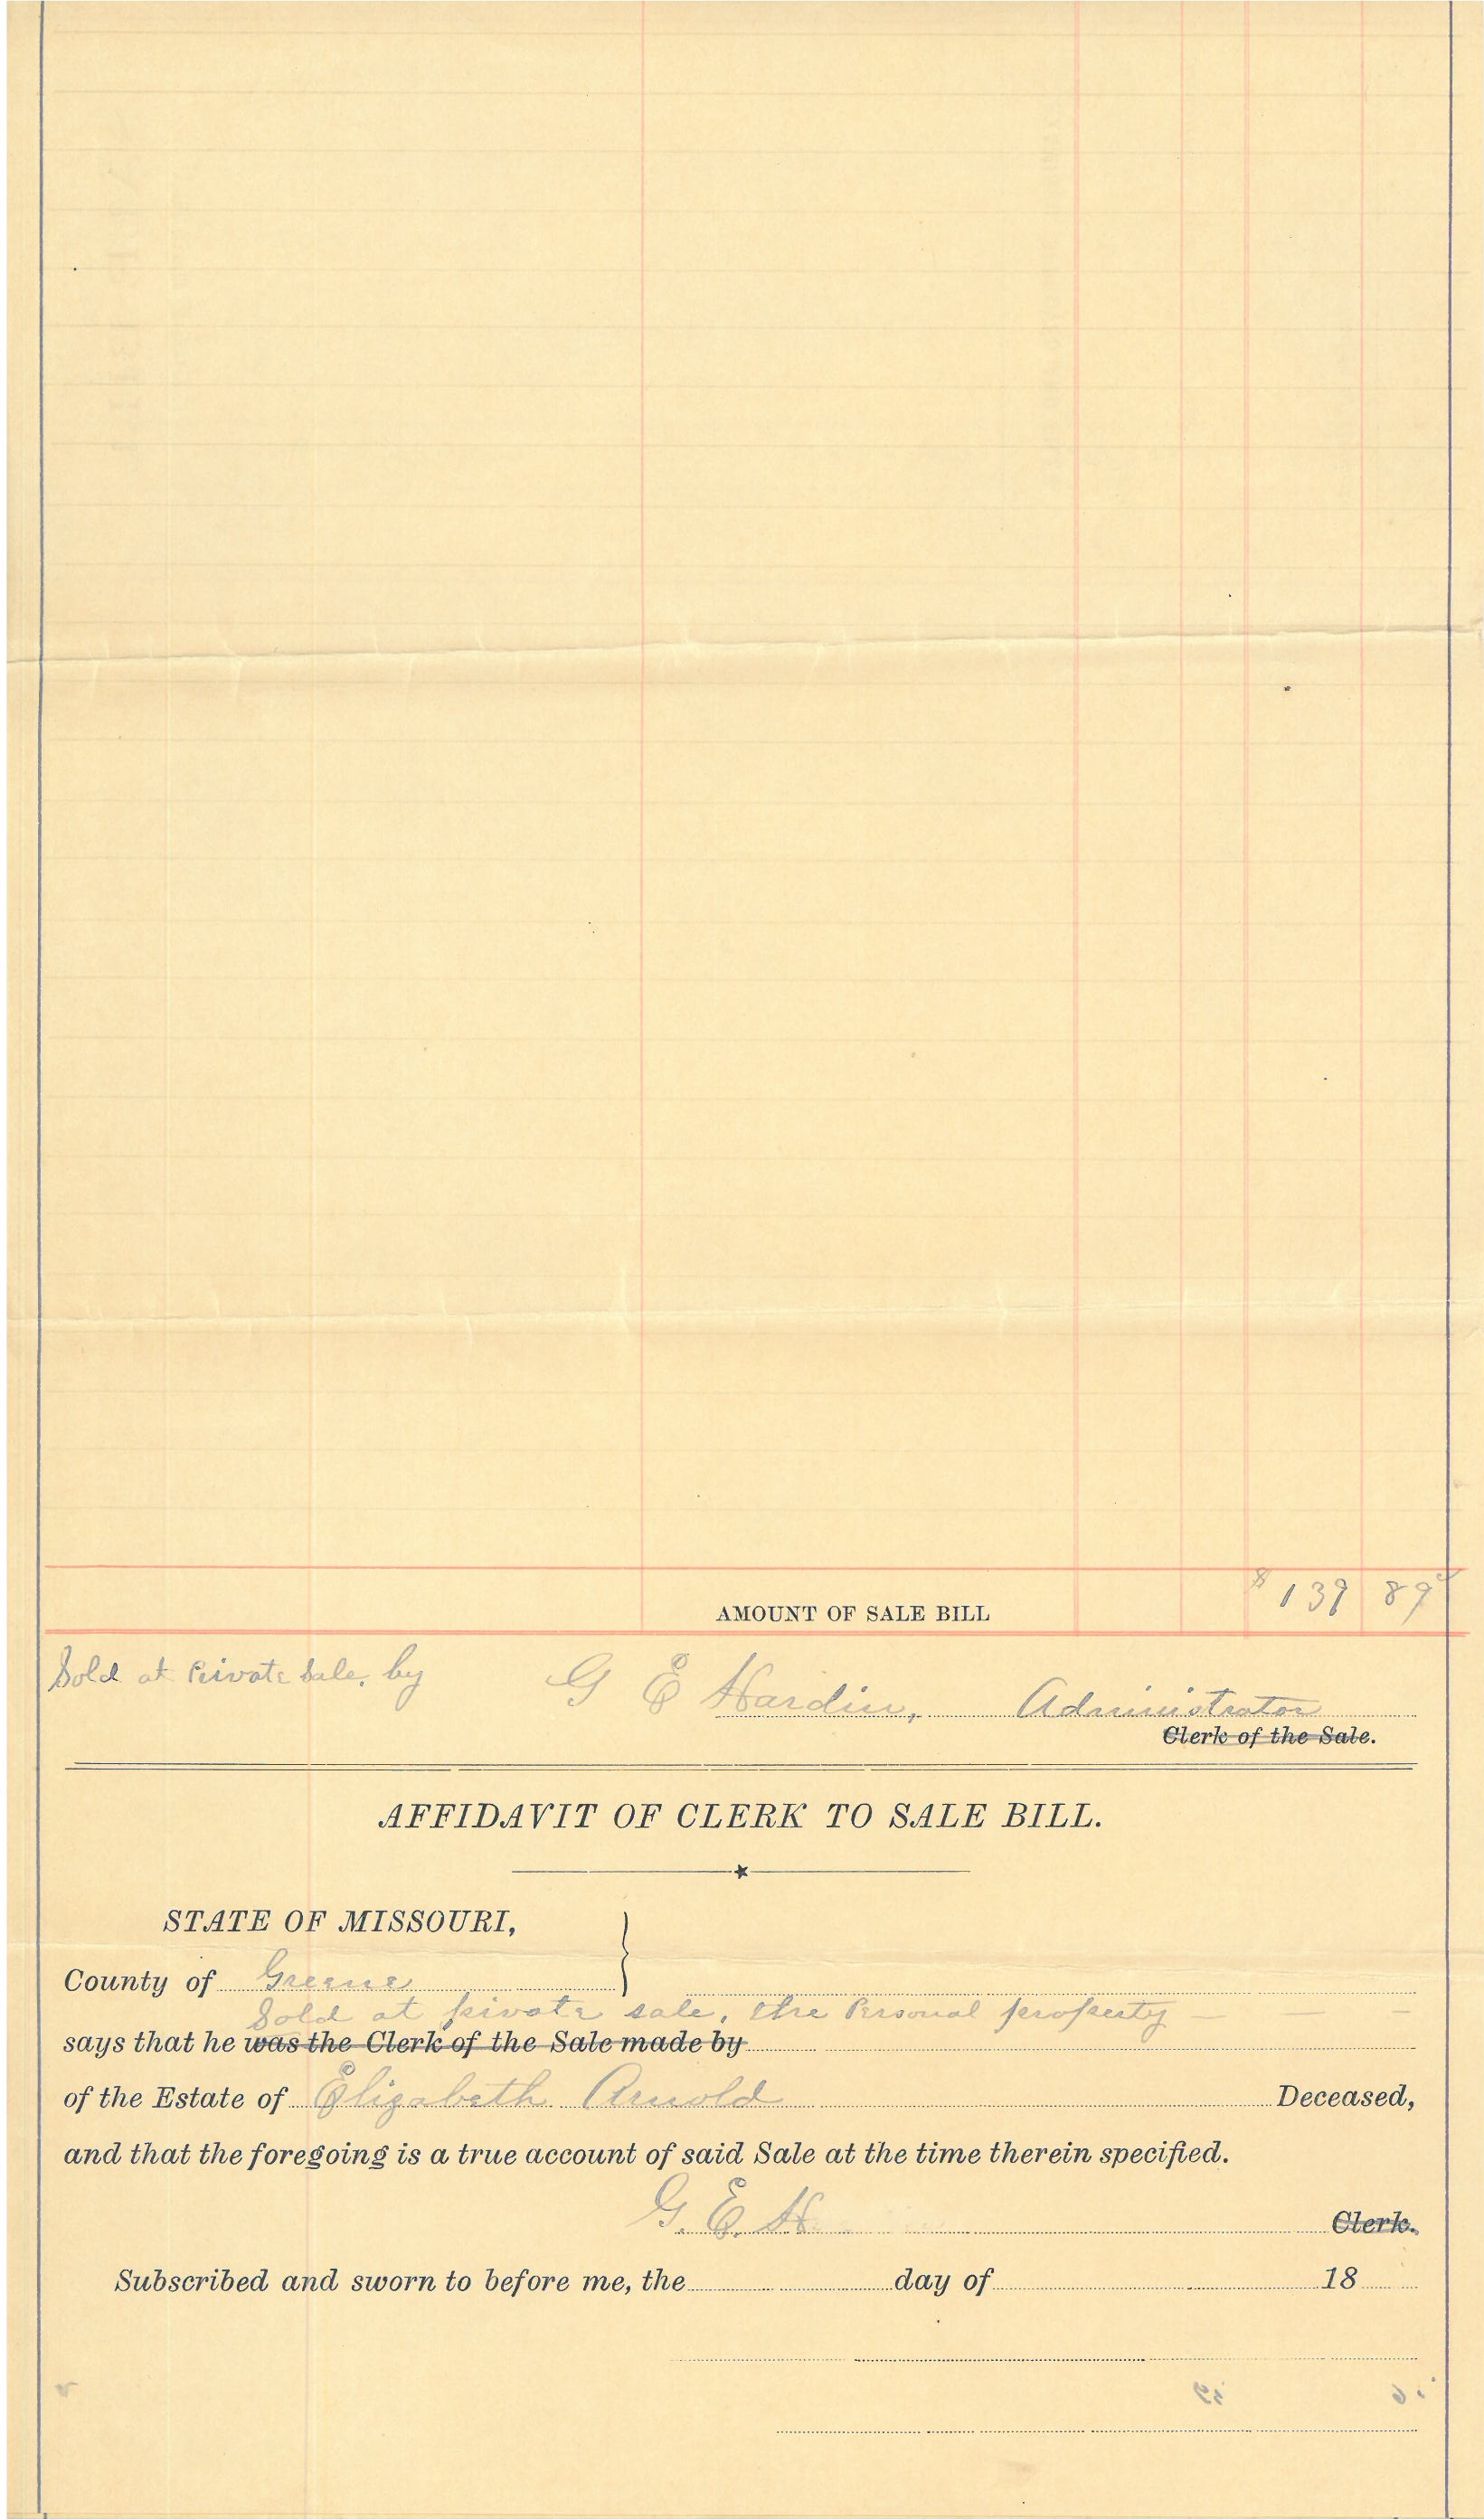 AMOUNT OF SALE BILL $139 89
Sold at Private Sale, by G E Hardin, Administrator
Clerk of the Sale.
AFFIDAVIT OF CLERK TO SALE BILL.
STATE OF MISSOURI,
County of Greene
Sold at private sale, the Personal property
says that he was the Clerk of the Sale made by
of the Estate of Elizabeth Arnold Deceased,
and that the foregoing is a true account of said Sale at the time therein specified.
G. E. H Clerk.
Subscribed and sworn to before me, the day of 18